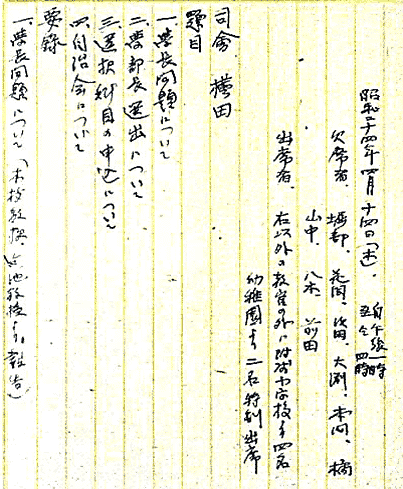 昭和二十四年四月十四日(木)、自午後一時
至仝四時
欠席者、堀部、花岡、次田、大渕、本間、橘
山中、八木、前田
出席者、右以外の教官の外に附属小学校より四名
幼稚園より二名特別出席
司会 横田
題目
一、学長問題について
二、学部長選出について
三、選択科目の申込について
四、自治会について
要録
一、学長問題について(木枝教授、小池教授より報告)